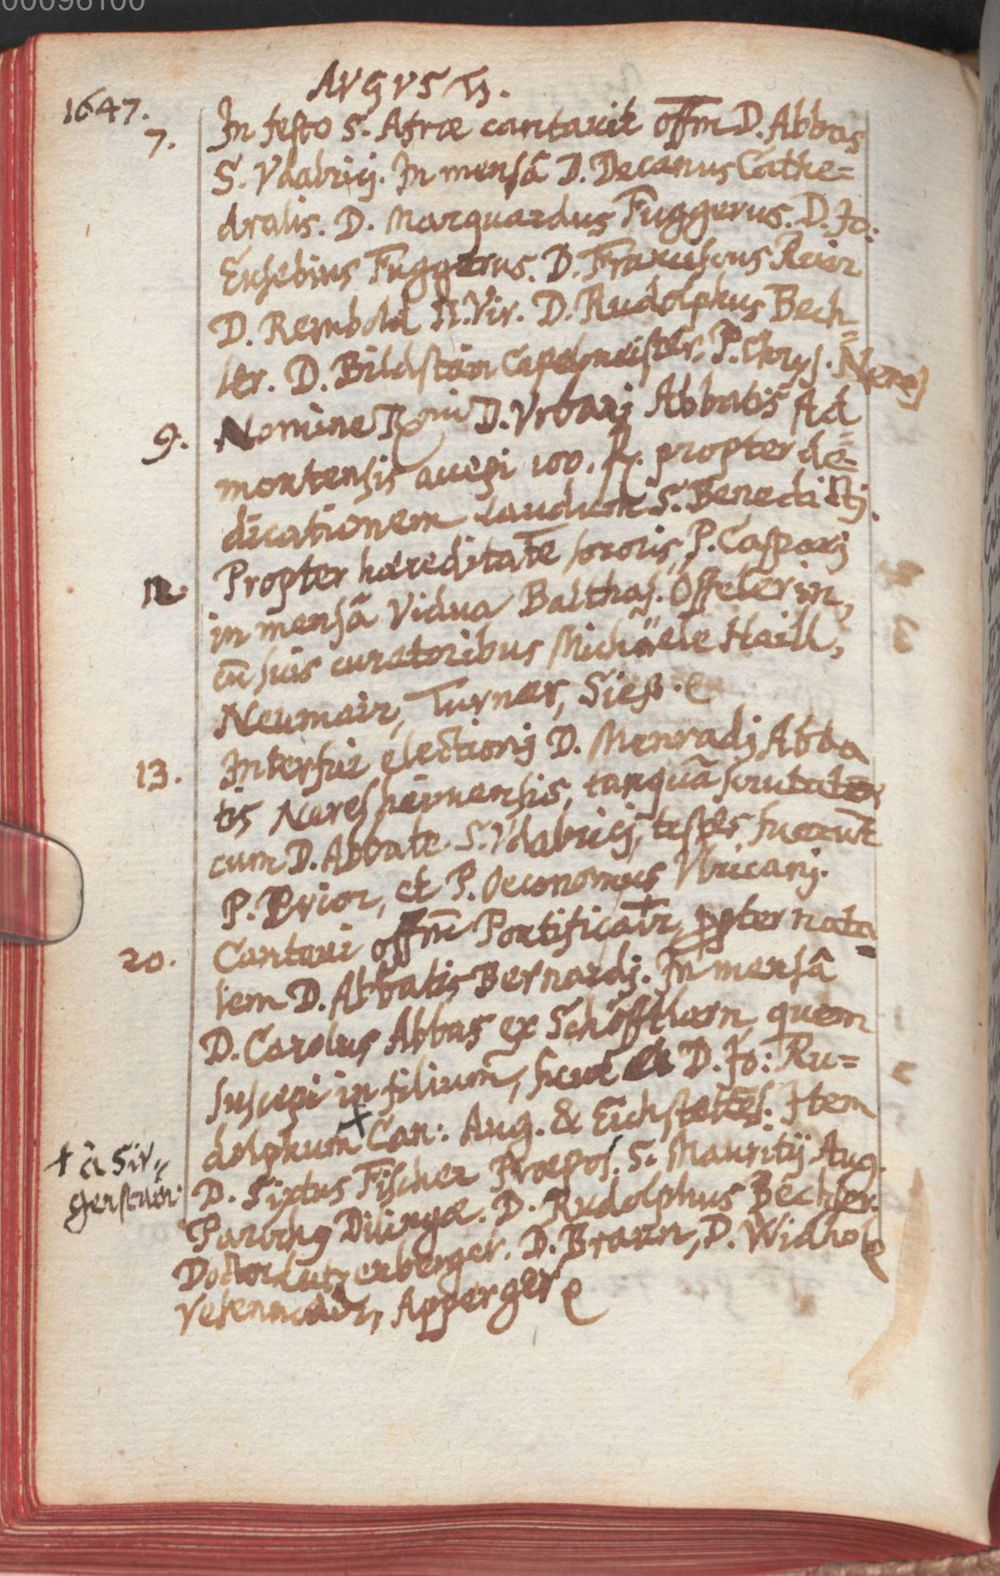 00096100
AVGVSTI.
1647.
7. In festo S. Afræ cantavit offm D. Abbas
S. Vdalricj. In mensâ D. Decanus Cathe=
dralis. D. Marquardus Fuggerus. D. Jo:
Eusebius Fuggerus. D. Franciscus
D. Rembold II.Vir. D. Rudolphus Bech=
ler. D. Bildstain Capelmeister. P. Chrys.
9. Nomine D. Vrbanj Abbatis Ad=
montensis accepi 100. fl. propter de=
dicationem laudum S. Benedictj.
12. Propter hæreditatē sororis P. Casparj
in mensâ Vidua Balthas. Offelerin,
cū suis curatoribus Michäele Haill,
Neumair, Turner,
13. Interfui electionj D. Menradj Abba
tis Nereshaimensis, tanquā scrutator
cum D. Abbate S. Vdalricj, testes fuerūt
P. Prior, et P. Oeconomus Vlricanj.
20. Cantavi offm̄ Pontificatr, propter nata=
lem D. Abbatis Bernardj. In mensâ
D. Carolus Abbas ex Schöffthern, quem
suscepi in filium, sicut et D. Jo: Ru=
dolphum + Can: Aug. & Eichstettēs. Item
+ à Sir=
genstain
D. Sixtus Fischer Præpos. S. Mauritij Aug.
Parochq Dilingæ. D. Rudolphus Bechler.
Doctor Lutzenberger. D. Braun, D. Widholz
Vetenmair, Apperger